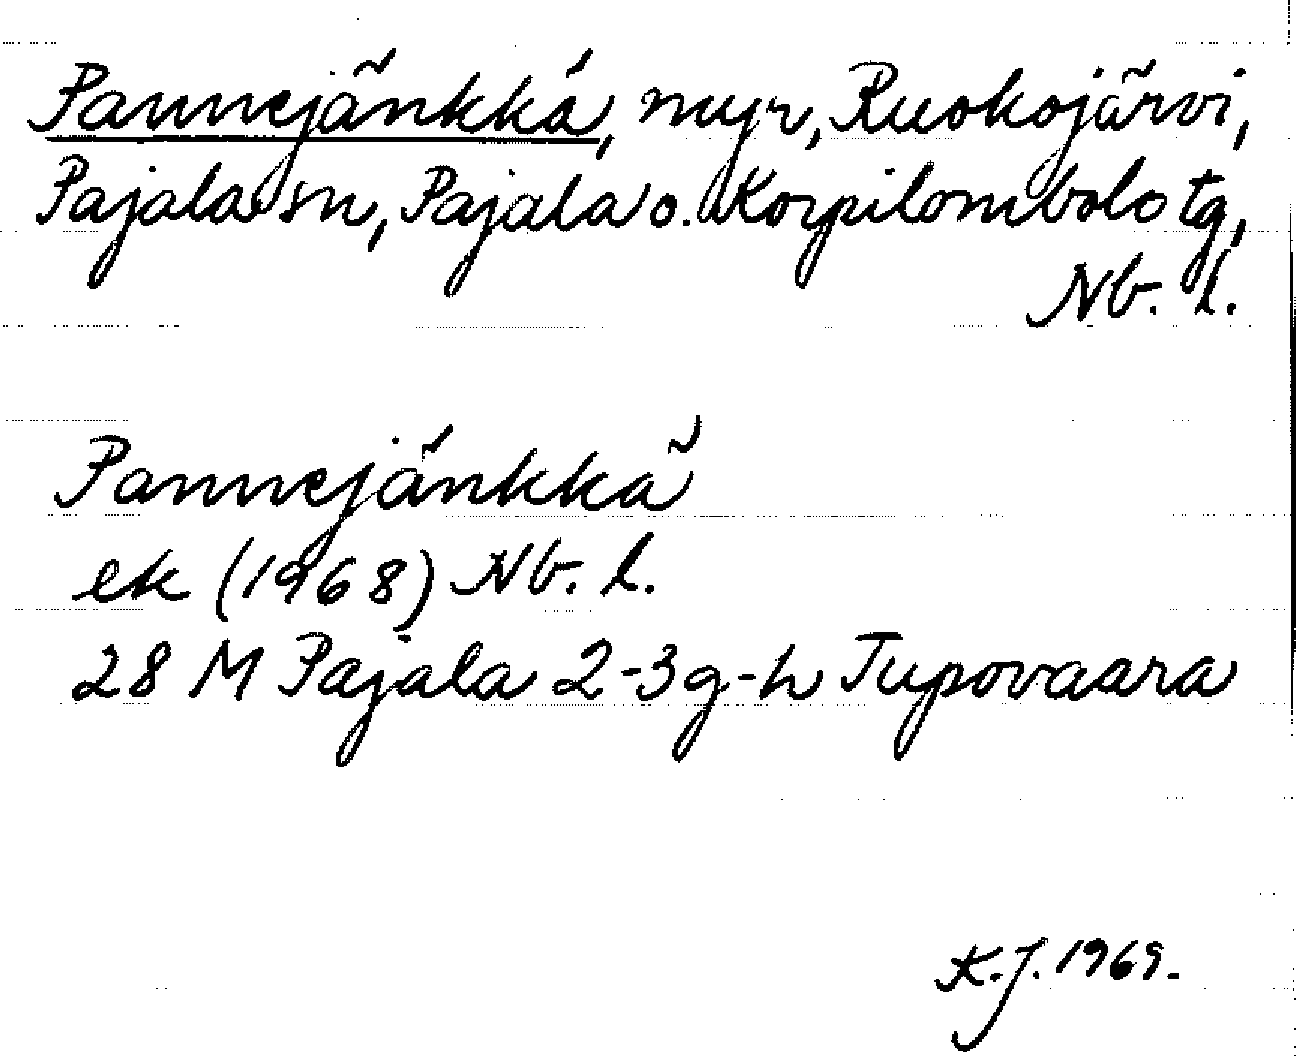 Pannejänkkä, myr, Ruokojärvi,
Pajala sn, Pajala o. Korpilombolo tg,
Nb. l.
Pannejänkkä
ek (1968) Nb. l.
28 M Pajala 2-3g-h Tupovaara
K.J. 1969.